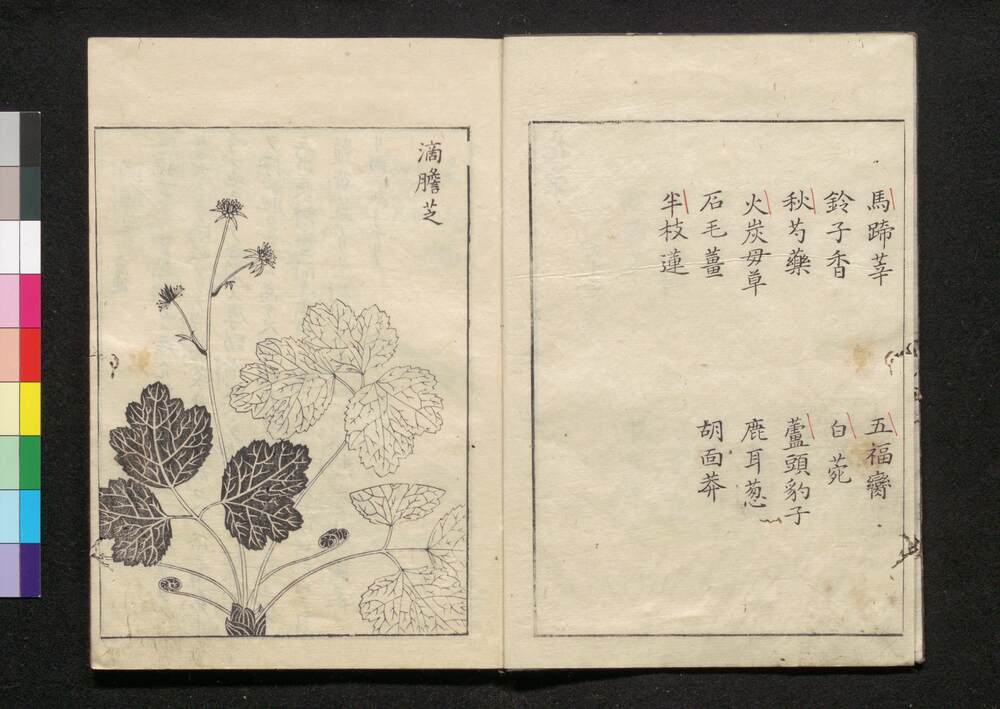 馬蹄莘
鈴子香
秋芍藥
火炭毋草
石毛薑
半枝蓮
五福
白菀
蘆頭豹子
鹿耳葱
胡面莽
滴膽芝